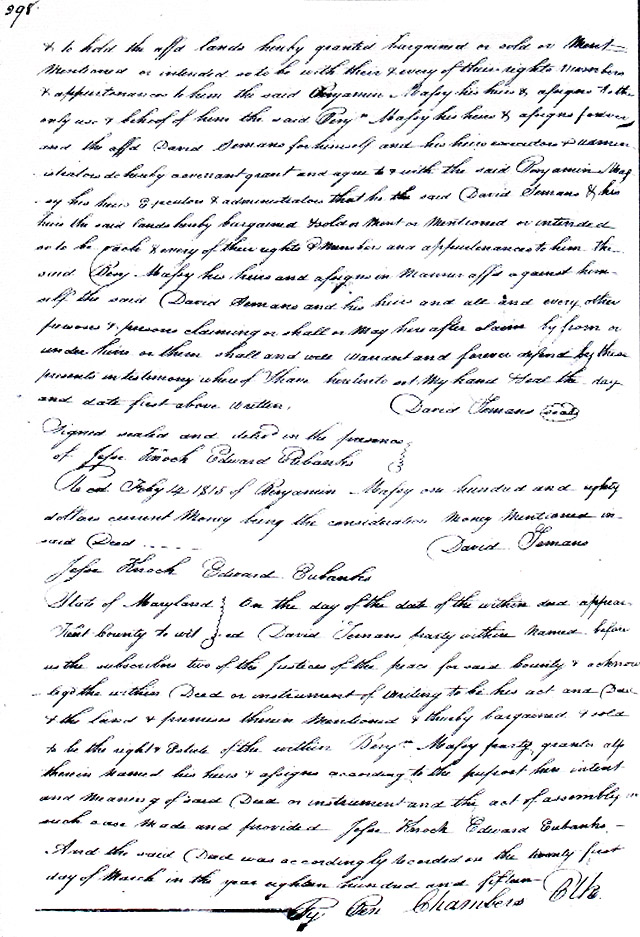 398
& to hold the affd lands hereby granted bargained or sold or Ment
Mentioned or intended so to be with their & every of their rights Members
& appurtenances to him the said Benjamin Massy his heirs & assigns to the
only use & behoof of him the said Benjn Massy his heirs & assigns forever
and the affd David Temans for himself and his heirs executors & admin
istrators do hereby covenant grant and agree to & with the said Benjamin Mas
sy his heirs Executors & administrators that he the said David Temans & his
heirs the said lands hereby bargained & sold or Ment or Mentioned or intended
so to be each & every of their rights & Members and appurtenances to him the
said Benj Massy his heirs and assigns in Manner affd against him
self the said David Temans and his heirs and all and every other
person & persons claiming or shall or May here after claim by from or
under him or them shall and will warrant and forever defend by these
presents in testimony where of I have hereunto set My hand & seal the day
and date first above written. David Temans seal
Signed sealed and deliv'd in the presence
of Jesse Knock Edward Eubanks
Recd Feby 14 1815 of Benjamin Massy one hundred and eighty
dollars current Money being the consideration Money Mentioned in
said Deed David Temans
Jesse Knock Edward Eubanks
State of Maryland On the day of the date of the within deed appear
Kent County to wit ed David Temans party within Named before
us the subscribers two of the Justices of the peace for said County & acknow
legd the within Deed or instrument of writing to be his act and Deed
& the land & premises therein Mentioned & thereby bargained & sold
to be the right & Estate of the within Benjn Massy party grantee also
therein named his heirs & assigns according to the purport true intent
and Meaning of said Deed or instrument and the act of assembly in
such case Made and provided Jesse Knock Edward Eubanks
And the said Deed was accordingly recorded on the twenty first
day of March in the year eighteen hundred and fifteen
Pr Ben Chambers Clk